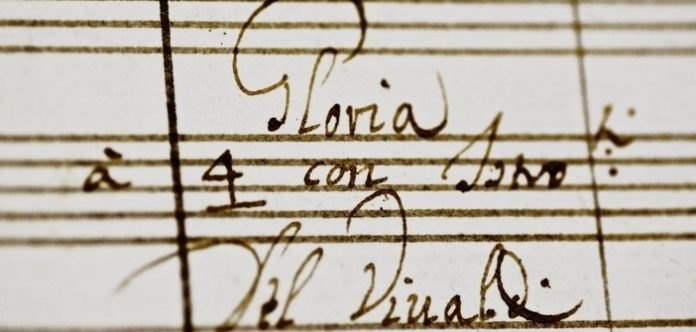 Gloria
à 4 con Istro.ti
Del Viualdi